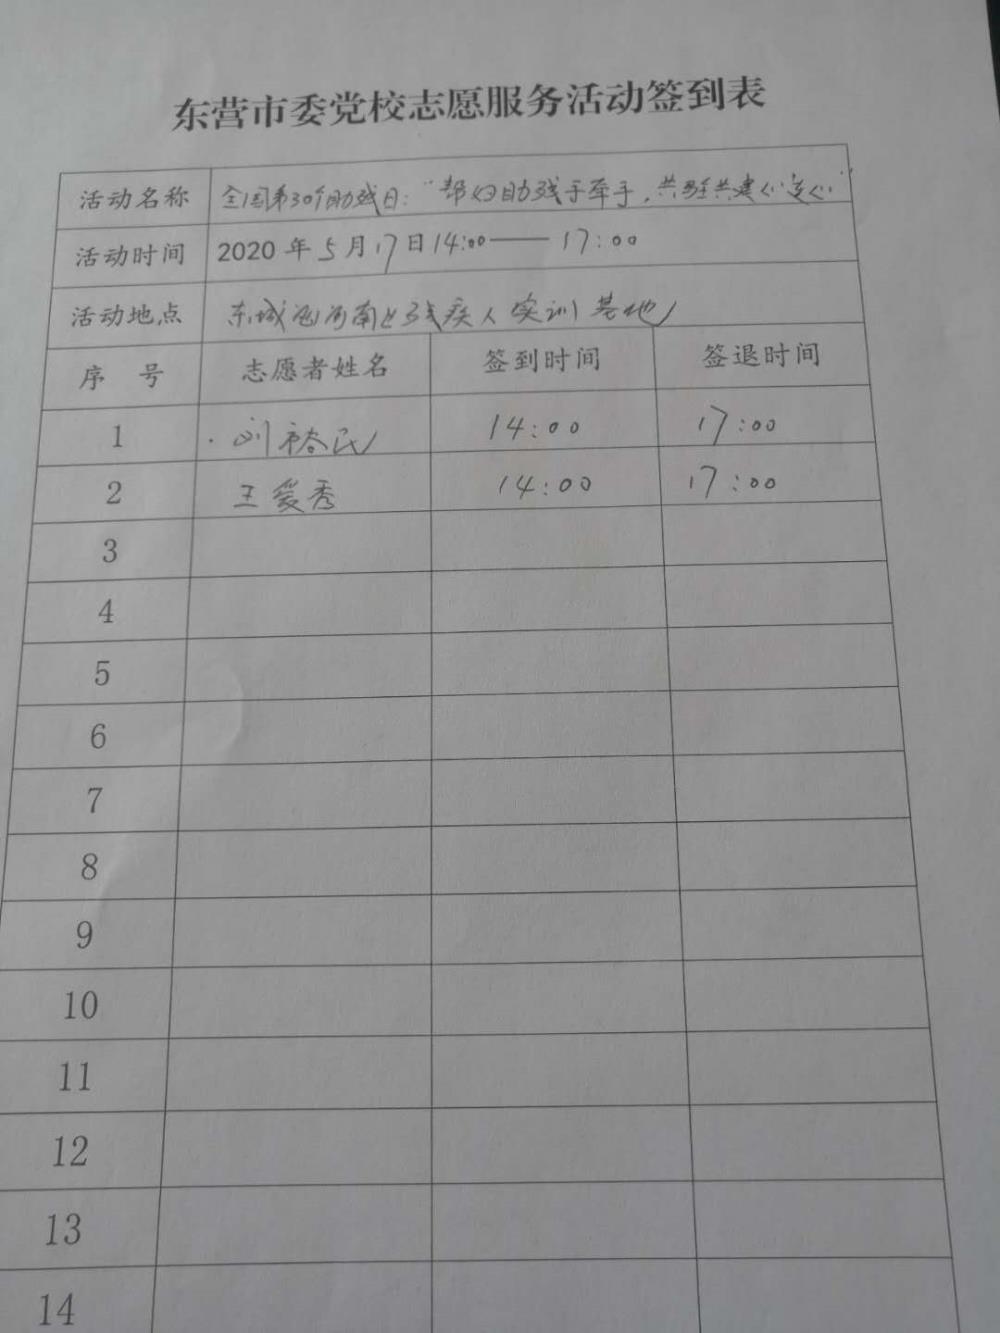 东营市委党校志愿服务活动签到表
活动名称 全国第30个助残日：“帮妇助残手牵手，共驻共建心连心”
活动时间 2020年5月17日14:00——17:00
活动地点 东城 河南 残疾人实训基地
序 号 志愿者姓名 签到时间 签退时间
1 刘裕民 14:00 17:00
2 王爱秀 14:00 17:00
3
4
5
6
7
8
9
10
11
12
13
14